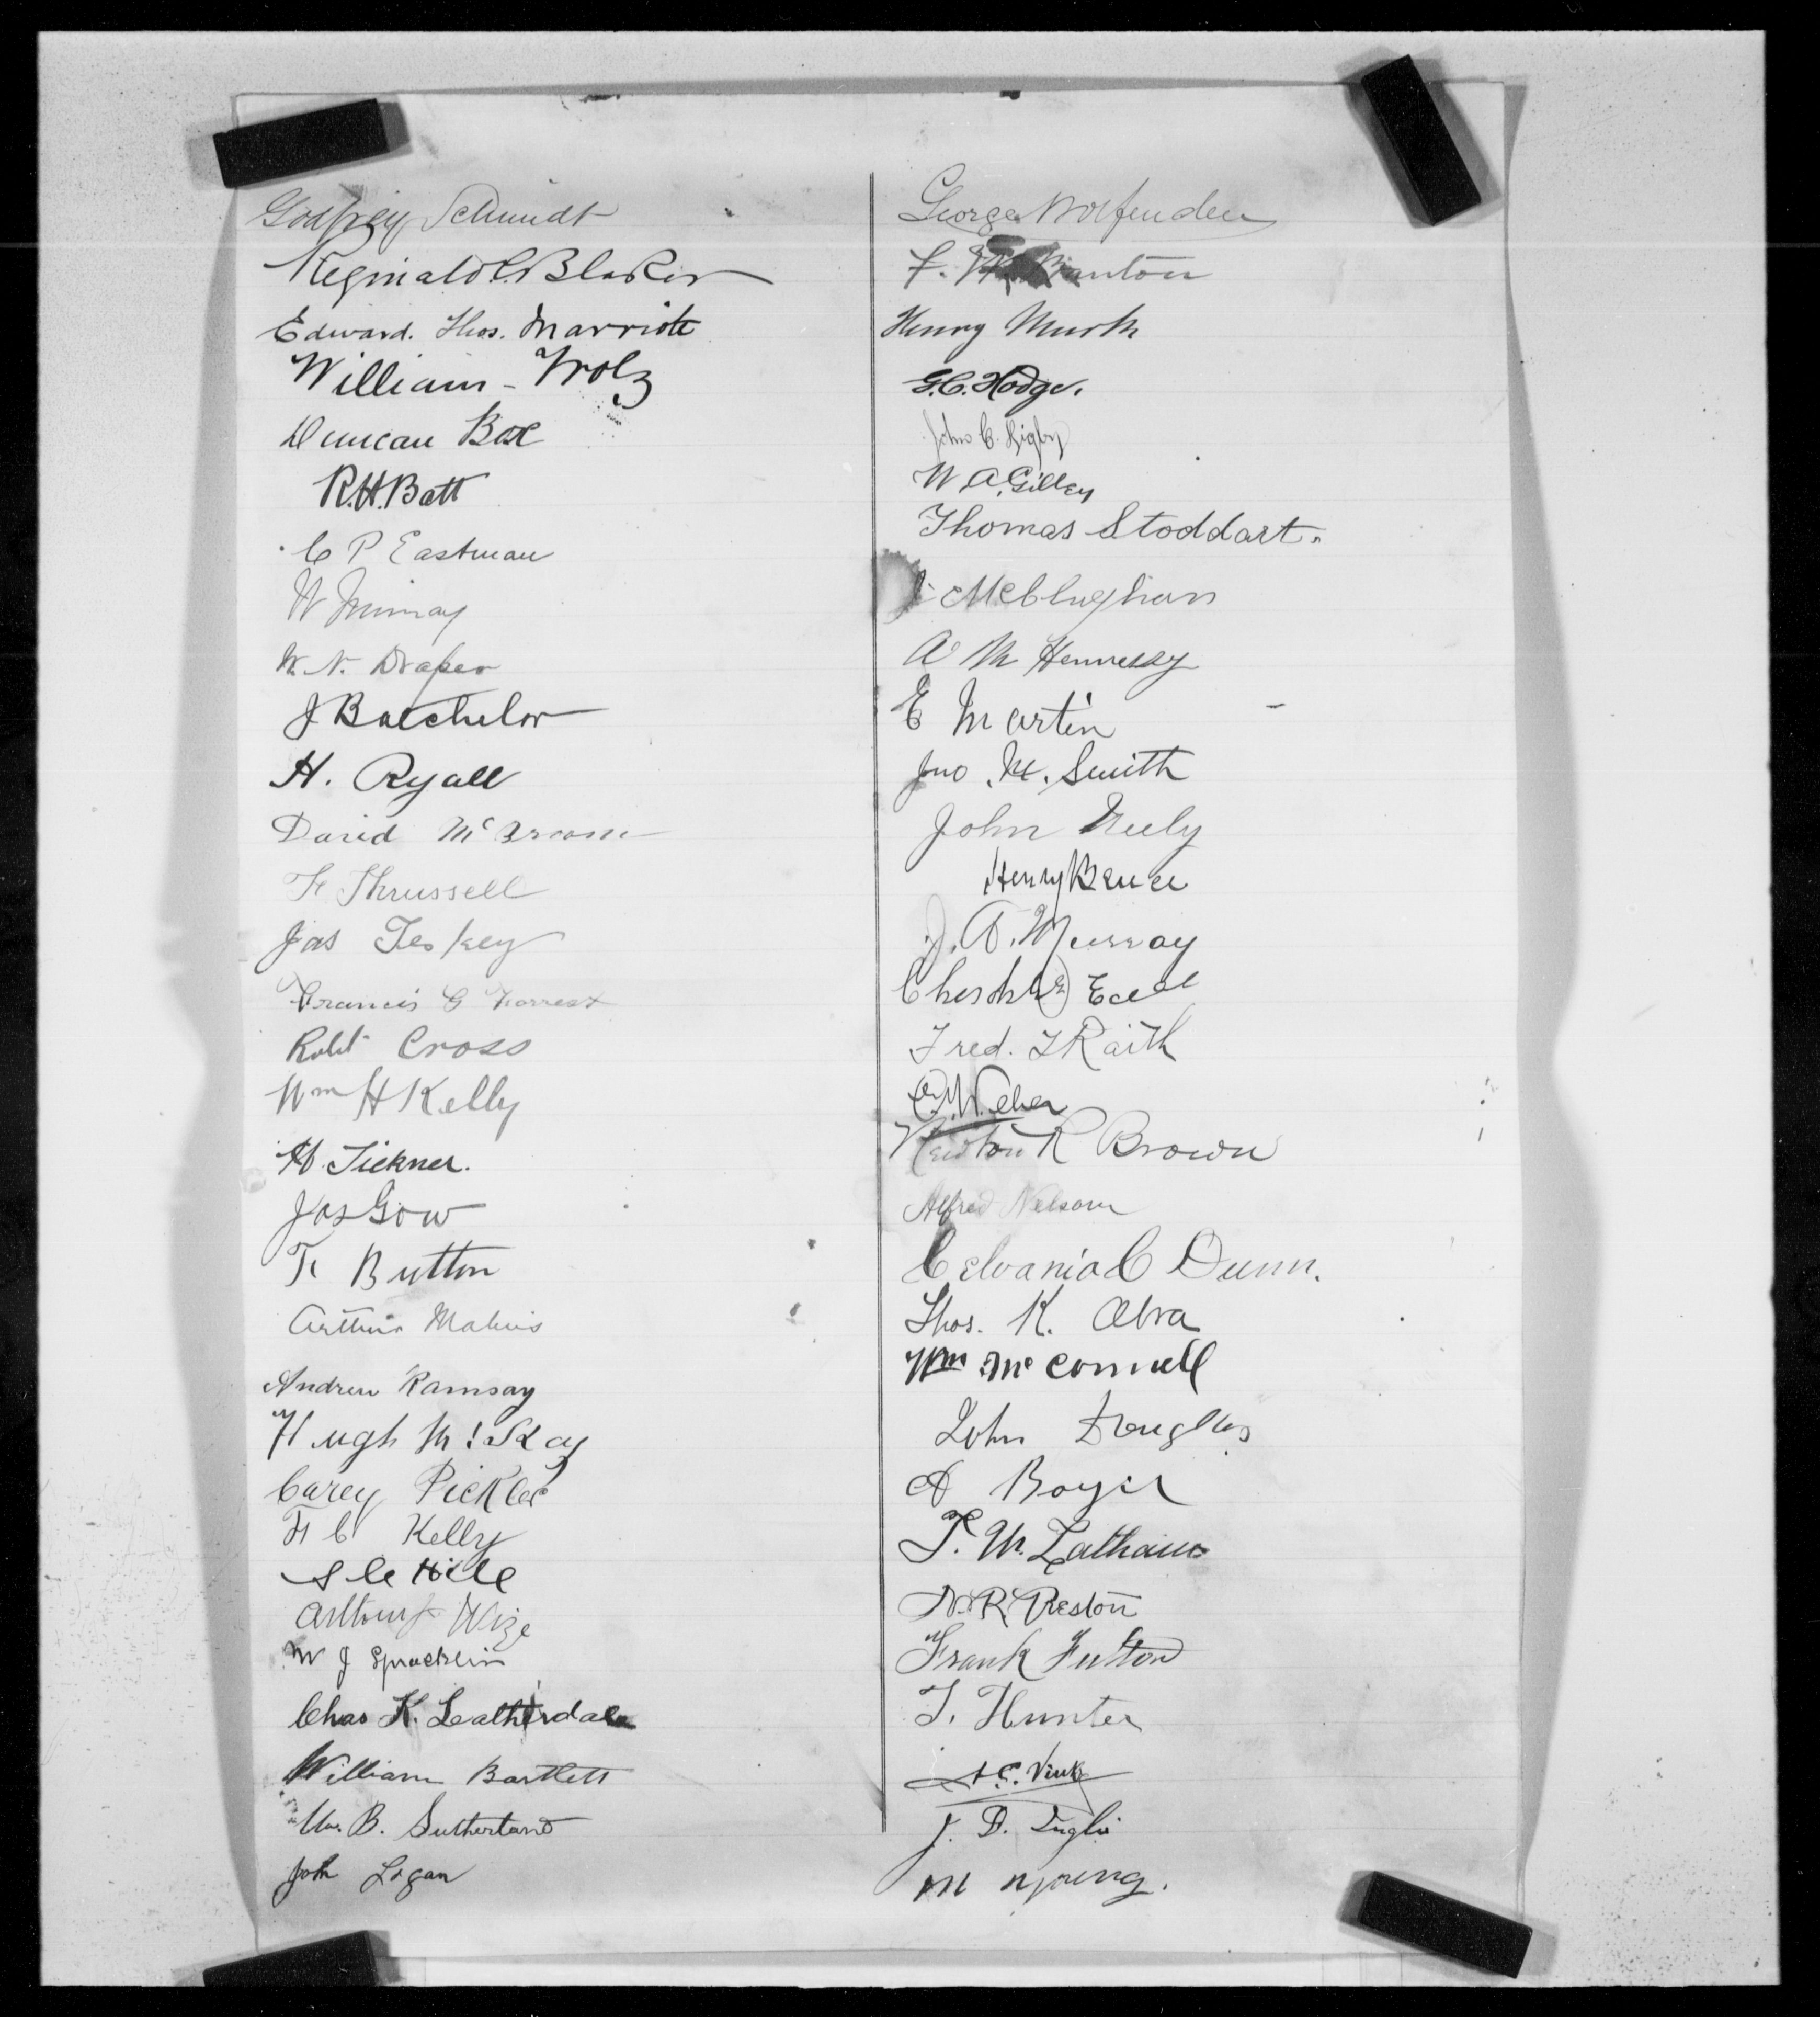 Godfrey Schmidt
Reginald C. Blaker
Edward. Thos. Marriott
William - Wolz
Duncan Box
R.H. Batt
C P Eastman
W Murray
W. N. Draper
J Batchelor
H. Ryall
David McBroom
F Thrussell
Jas Teskey
Francis G Forrest
Robt Cross
Wm H Kelly
H. Tickner.
Jas Gow
F Button
Arthur Mahins
Andrew Ramsay
Hugh McKay
Carey Pickles
H C Kelly
S C Hill
Arthur Wize
W J Spracklin
Chas K. Leatherdale
William Bartlett
Wm. B. Sutherland
John Logan
George Wolfenden
F. Banton
Henry
G.C. Hodge.
John C. Digby
W. A. Gilley
Thomas Stoddart.
McCloghan
A M Hennessy
E Martin
Jno. M. Smith
John Neely
Henry Bruce
J. A. Murray
Fred. T Raith
Weber
Newton R Brown
Alfred Nelson
Celvania C Dunn.
Thos. K. Abra
Wm McConnell
John Douglas
A Boyer
T. W. Latham
N. R. Preston
Frank Fulton
T. Hunter
J. D. Inglis
M Young.